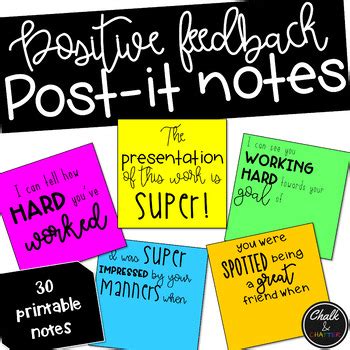 Positive feedback
Post-it notes
The
presentation
of this work is
SUPER!
I can see you
WORKING
HARD towards your
goal of
I can tell how
HARD you've
worked
I was SUPER
IMPRESSED by your
MANNERS when
you were
SPOTTED being
a great
friend when
30
printable
notes
Chalk
&
CHATTER